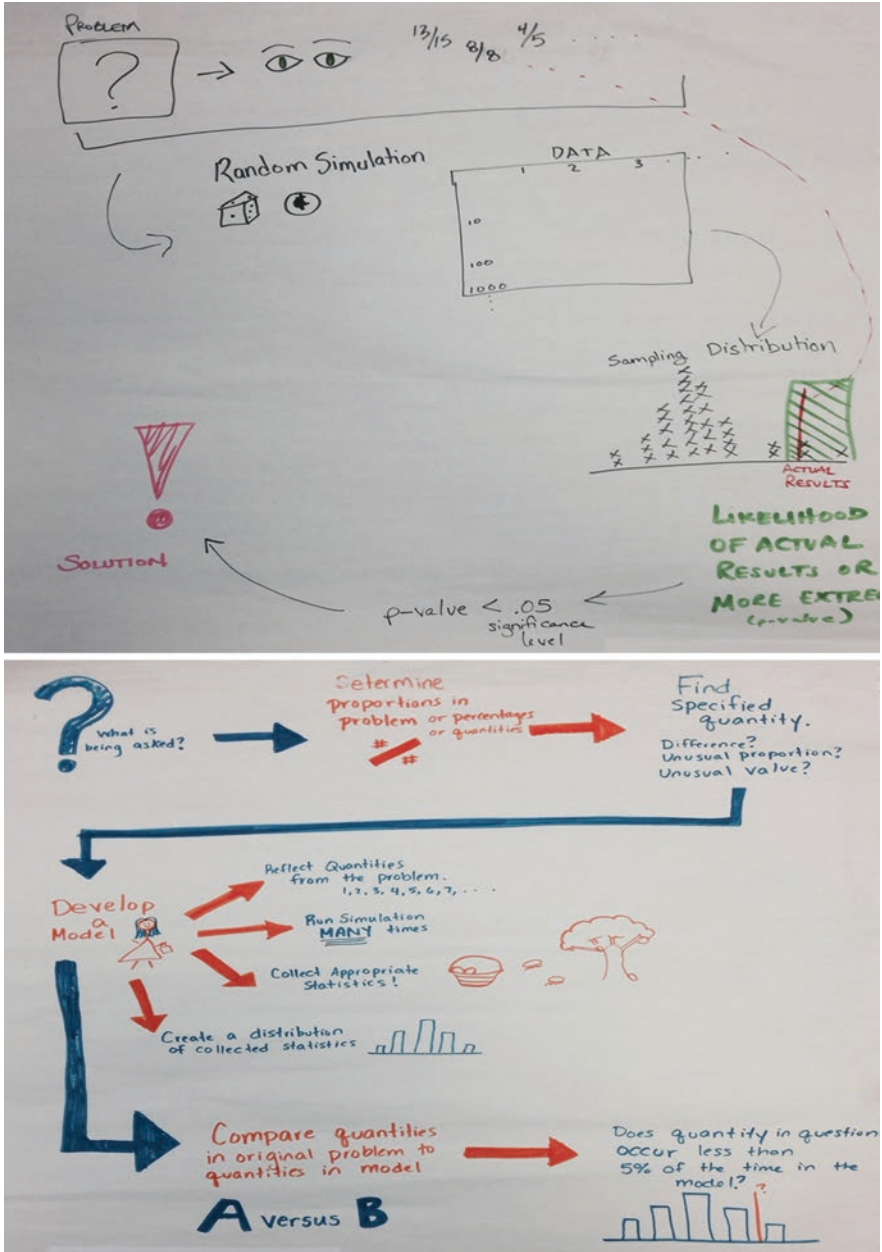 PROBLEM
?
13/15 8/8 4/5 . . . . .
Random Simulation
DATA
1 2 3 . . . . .
10
100
1000
Sampling Distribution
ACTUAL
RESULTS
LIKELIHOOD
OF ACTUAL
RESULTS OR
MORE EXTRE
(p-value)
p-value < .05
significance
level
!
SOLUTION
?
What is
being asked?
Determine
proportions in
problem or percentages
or quantities
#/#
Find
specified
quantity.
Difference?
Unusual proportion?
Unusual value?
Develop
a
Model
Reflect Quantities
from the problem.
1, 2, 3, 4, 5, 6, 7, . . . .
Run Simulation
MANY times
Collect Appropriate
Statistics!
Create a distribution
of collected statistics
Compare quantities
in original problem to
quantities in model
A versus B
Does quantity in question
occur less than
5% of the time in the
model?
?